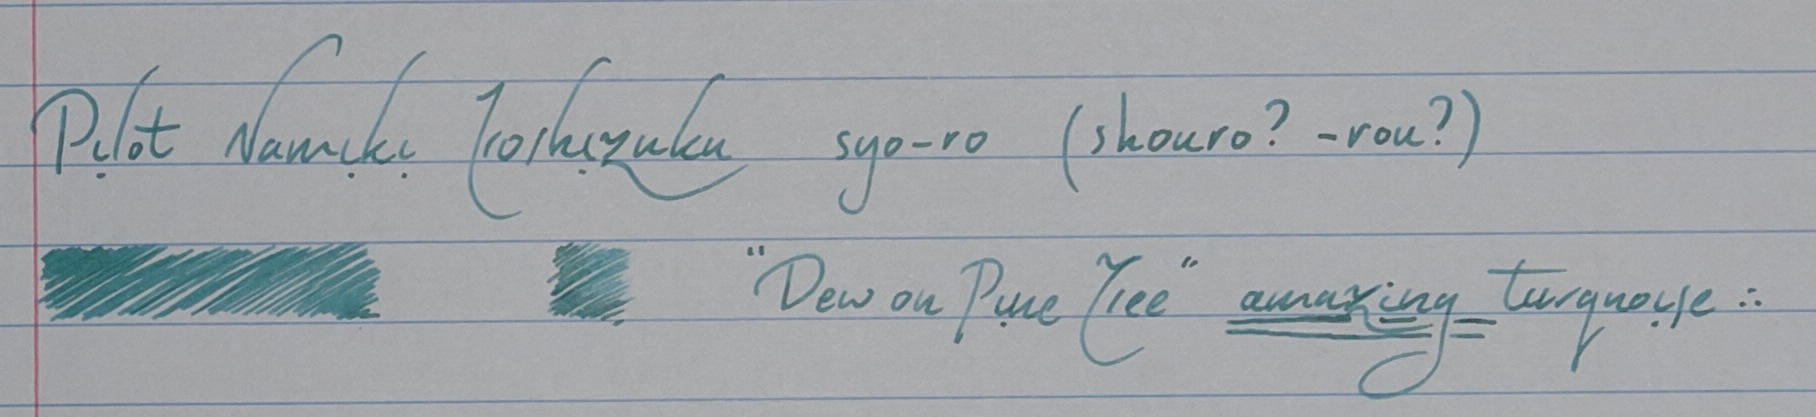 Pilot Namiki Iroshizuku syo-ro (shouro? -rou?)
"Dew on Pine Tree" amazing turquoise :.